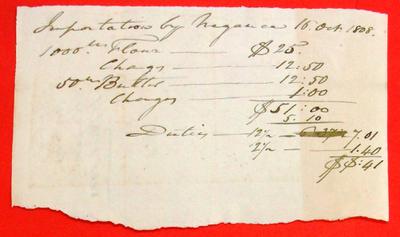 Importation by Nagance 16 Oct 1808.
1000 lbs Flour — $25.
Charges — 12:50
50 lbs Butter — 12:50
Charges — 1:00
$51:00
5.10
Duties — 12½ — 7.01
2½ — 1.40
$8:41